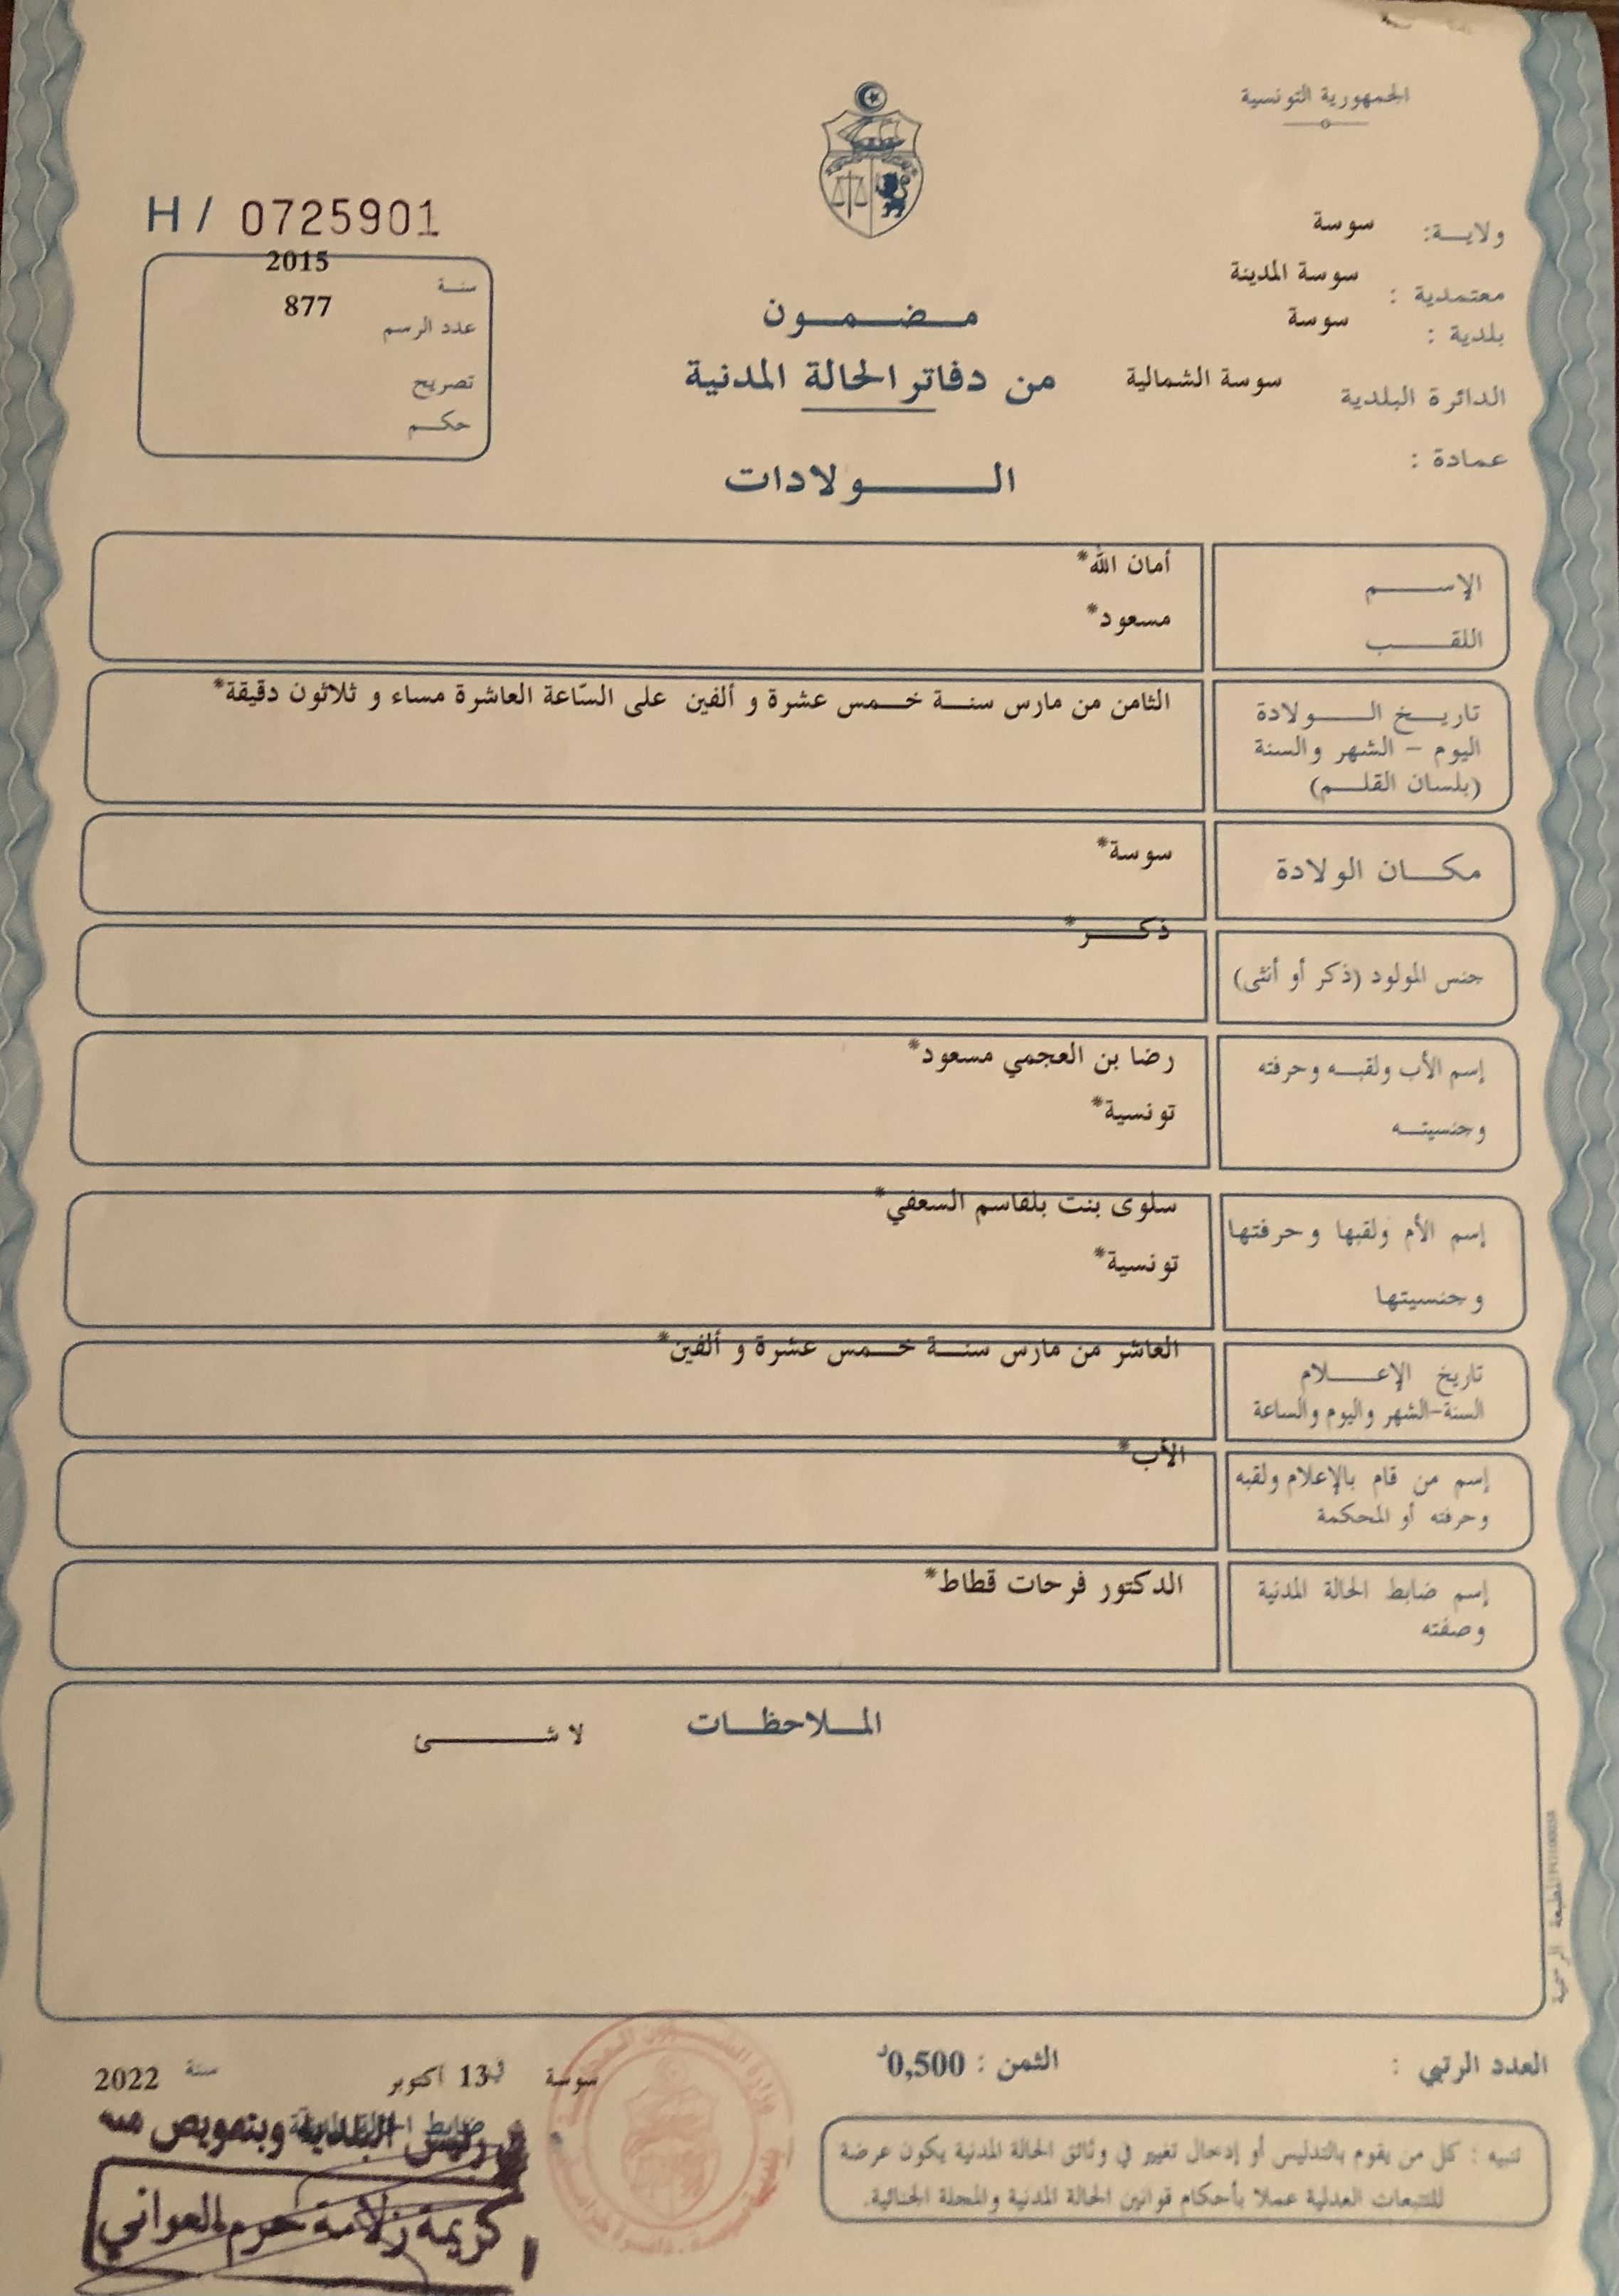 الجمهورية التونسية
H / 0725901
ولاية: سوسة
معتمدية : سوسة المدينة
بلدية : سوسة
الدائرة البلدية سوسة الشمالية
عمادة :
سنة 2015
عدد الرسم 877
تصريح
حكم
مضمون
من دفاتر الحالة المدنية
الولادات
الإسم أمان الله*
اللقب مسعود*
تاريخ الولادة الثامن من مارس سنة خمس عشرة و ألفين على السّاعة العاشرة مساء و ثلاثون دقيقة*
اليوم - الشهر والسنة
(بلسان القلم)
مكان الولادة سوسة*
جنس المولود (ذكر أو أنثى) ذكر*
إسم الأب ولقبه وحرفته رضا بن العجمي مسعود*
وجنسيته تونسية*
إسم الأم ولقبها وحرفتها سلوى بنت بلقاسم السعفي*
وجنسيتها تونسية*
تاريخ الإعلام العاشر من مارس سنة خمس عشرة و ألفين*
السنة-الشهر واليوم والساعة
إسم من قام بالإعلام ولقبه الأب*
وحرفته أو المحكمة
إسم ضابط الحالة المدنية الدكتور فرحات قطاط*
وصفته
الملاحظات لا شئ
المطبعة الرسمية
العدد الرتبي :
الثمن : 0,500د
سوسة في 13 اكتوبر سنة 2022
ضابط الحالة المدنية
رئيس البلدية وبتفويض منه
كريمة زلامة حرم العواني
تنبيه : كل من يقوم بالتدليس أو إدخال تغيير في وثائق الحالة المدنية يكون عرضة
للتتبعات العدلية عملا بأحكام قوانين الحالة المدنية والمجلة الجنائية.